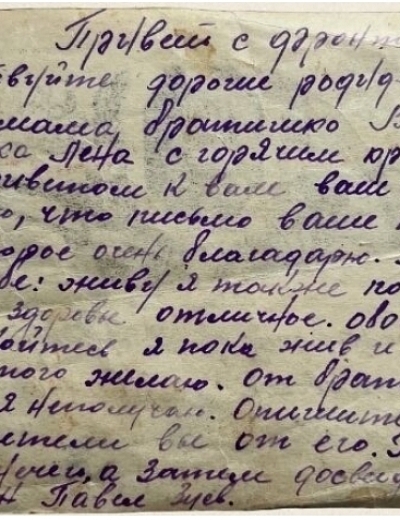 Привет с фронт
вуйте дорогие роди
мама, братишко
ка Лена с горячим кр
риветом к вам ваш
ю, что письмо ваше
торое очень благадарю.
бе: живу я также по
здоровье отличное. обо
койтесь я пока жив и
того желаю. от брат
я неполучаю. Опишите
учители вы от его.
нечего, а затем досвид
Павел Зуев.